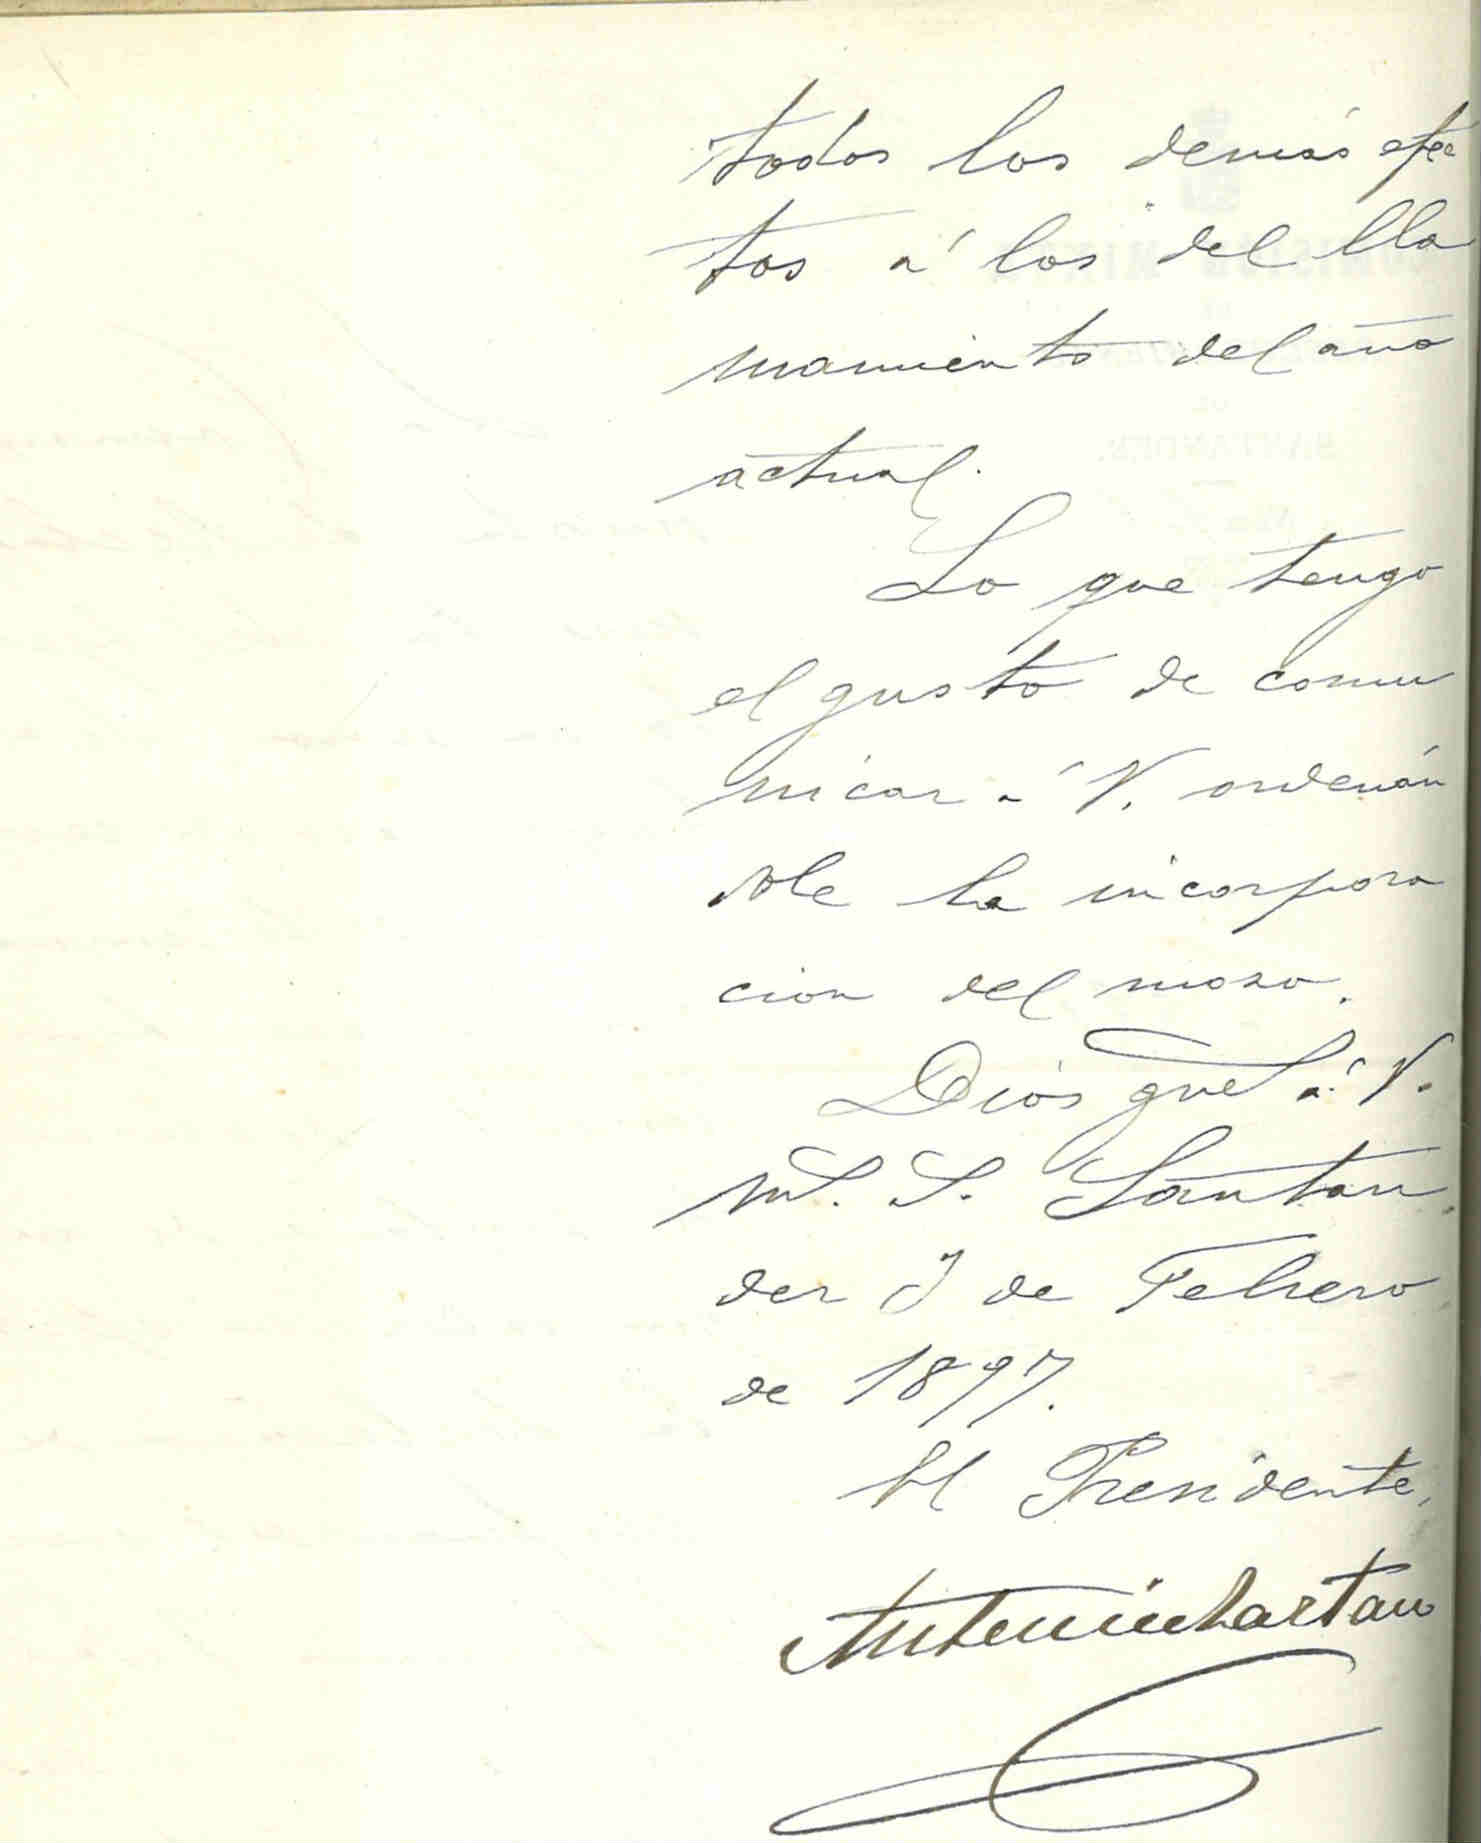 todos los demás efec
tos á los del lla
mamiento del año
actual.
Lo que tengo
el gusto de comu
nicar á V. ordenán
dole la incorpora
cion del mozo.
Dios gue á V.
m.s a.s. Santan
der 3 de Febrero
de 1897.
El Presidente,
SANTANDER.